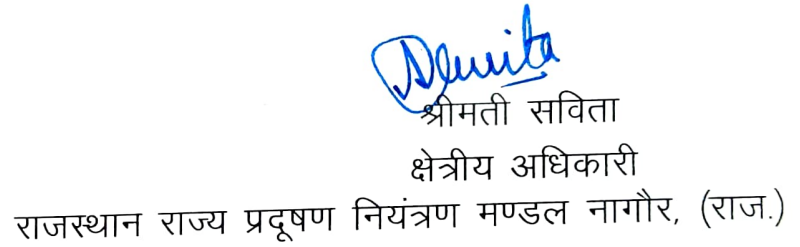 श्रीमती सविता
क्षेत्रीय अधिकारी
राजस्थान राज्य प्रदूषण नियंत्रण मण्डल नागौर, (राज.)